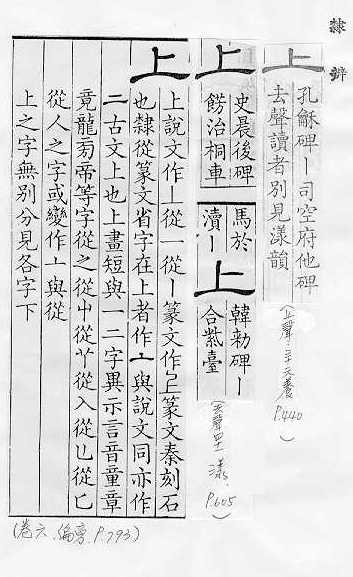 隸辨
上 孔龢碑丨司空府他碑
去聲讀者別見漾韻
(上聲三十六養
P.440)
上 史晨後碑
餝治桐車
馬於
瀆丨
上 韓勑碑丨
合紫臺
(去聲四十一漾
P.605)
上 上說文作丄從一從丨篆文作𠄞篆文秦刻石
也隸從篆文省字在上者作亠與說文同亦作
二古文上也上畫短與一二字異示言音童章
竟龍旁帝等字從之從屮從艹從入從乚從匕
從人之字或變作亠與從
上之字無別分見各字下
(卷六、偏旁、P.793)